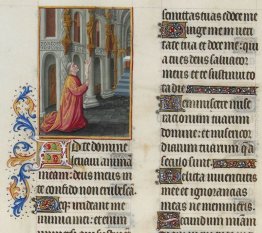 Ad te domine
levaui animā
meam: deus meus in
te confido non erubescā
Neqz irrideant me
inimici mei: etenim
semitas tuas edoce me
Dirige me in veri
tate tua et doce me: quia
tu es deus saluator
meus et te sustinui to
ta die
Reminiscere mise
rationum tuarum
domine: et misericor
diarum tuarum que a
seculo sunt
Delicta iuuentutis
mee et ignorancias
meas ne memineris
Secundum miam